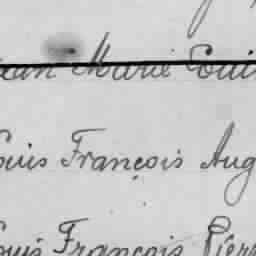 Jean Marie Louis
Louis François Aug
Louis François Pierr